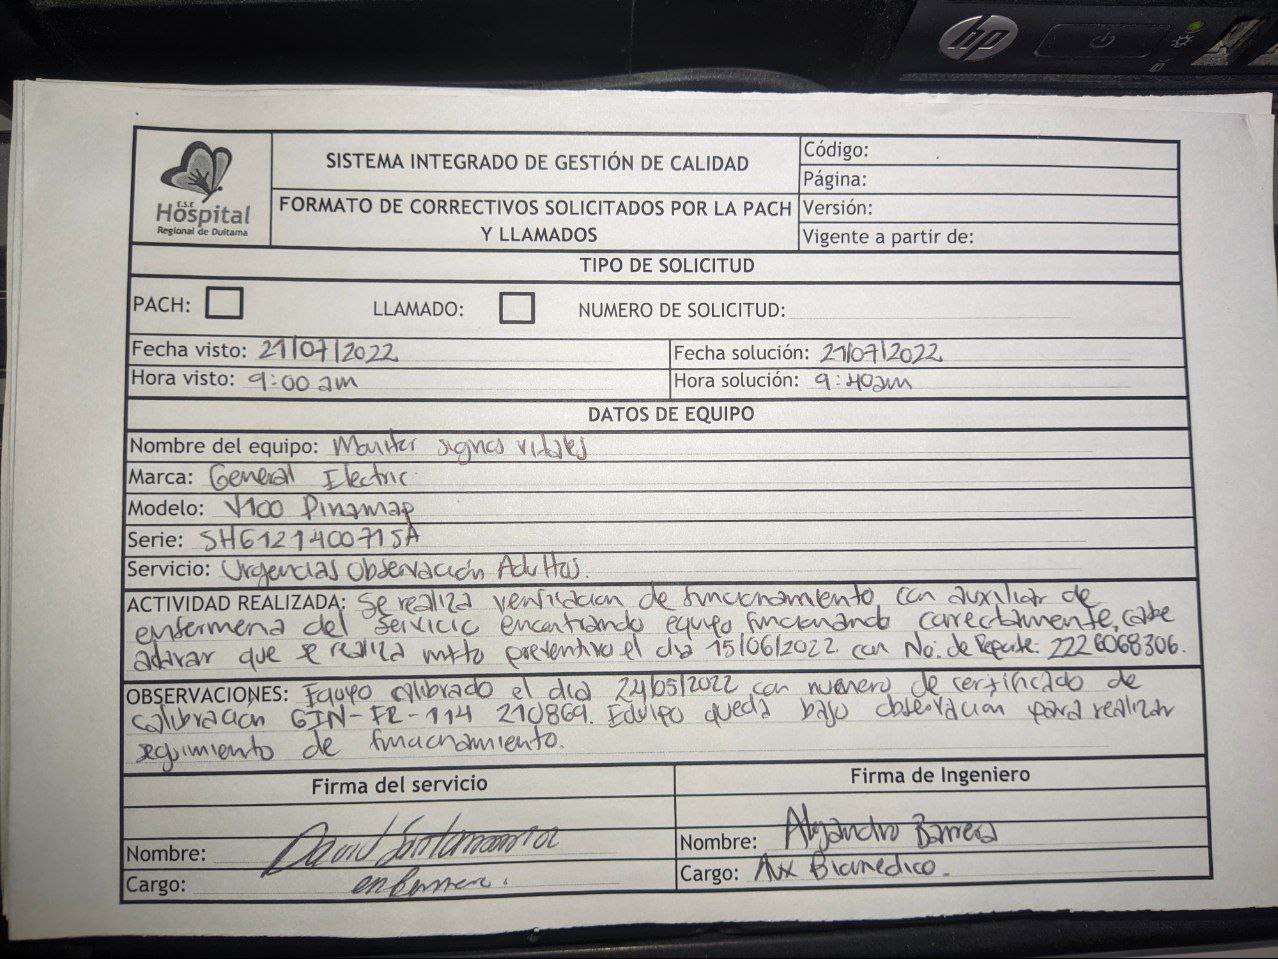 hp
E.S.E
Hospital
Regional de Duitama
SISTEMA INTEGRADO DE GESTIÓN DE CALIDAD
FORMATO DE CORRECTIVOS SOLICITADOS POR LA PACH
Y LLAMADOS
Código:
Página:
Versión:
Vigente a partir de:
TIPO DE SOLICITUD
PACH: LLAMADO: NUMERO DE SOLICITUD:
Fecha visto: 21/07/2022 Fecha solución: 21/07/2022
Hora visto: 9:00 am Hora solución: 9:40am
DATOS DE EQUIPO
Nombre del equipo: Monitor signos vitales
Marca: General Electric
Modelo: V100 Dinamap
Serie: SH612140071SA
Servicio: Urgencias Observación Adultos.
ACTIVIDAD REALIZADA: Se realiza verificacion de funcionamiento con auxiliar de
enfermeria del servicio encontrando equipo funcionando correctamente, cabe
aclarar que se realiza mtto preventivo el dia 15/06/2022 con No. de Reporte: 2226068306.
OBSERVACIONES: Equipo calibrado el dia 24/05/2022 con numero de certificado de
calibración GIN-FR-114 210869. Equipo queda bajo observacion para realizar
seguimiento de funcionamiento.
Firma del servicio Firma de Ingeniero
Nombre: David Santamaria Nombre: Alejandro Barrera
Cargo: enfermero. Cargo: Aux Biomedico.